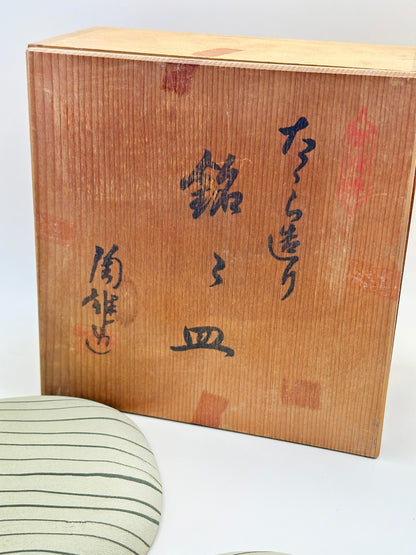 たたら造り
銘々皿
陶雄造